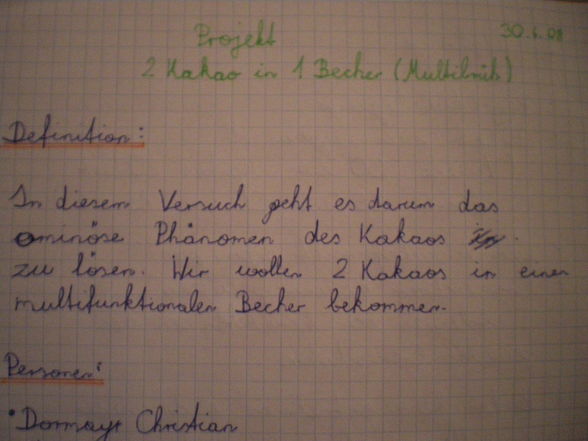 Projekt 30.6.08
2 Kakao in 1 Becher (Multidrink)
Definition:
In diesem Versuch geht es darum das
ominöse Phänomen des Kakaos
zu lösen. Wir wollen 2 Kakaos in einen
multifunktionalen Becher bekommen.
Personen:
• Dormayr Christian